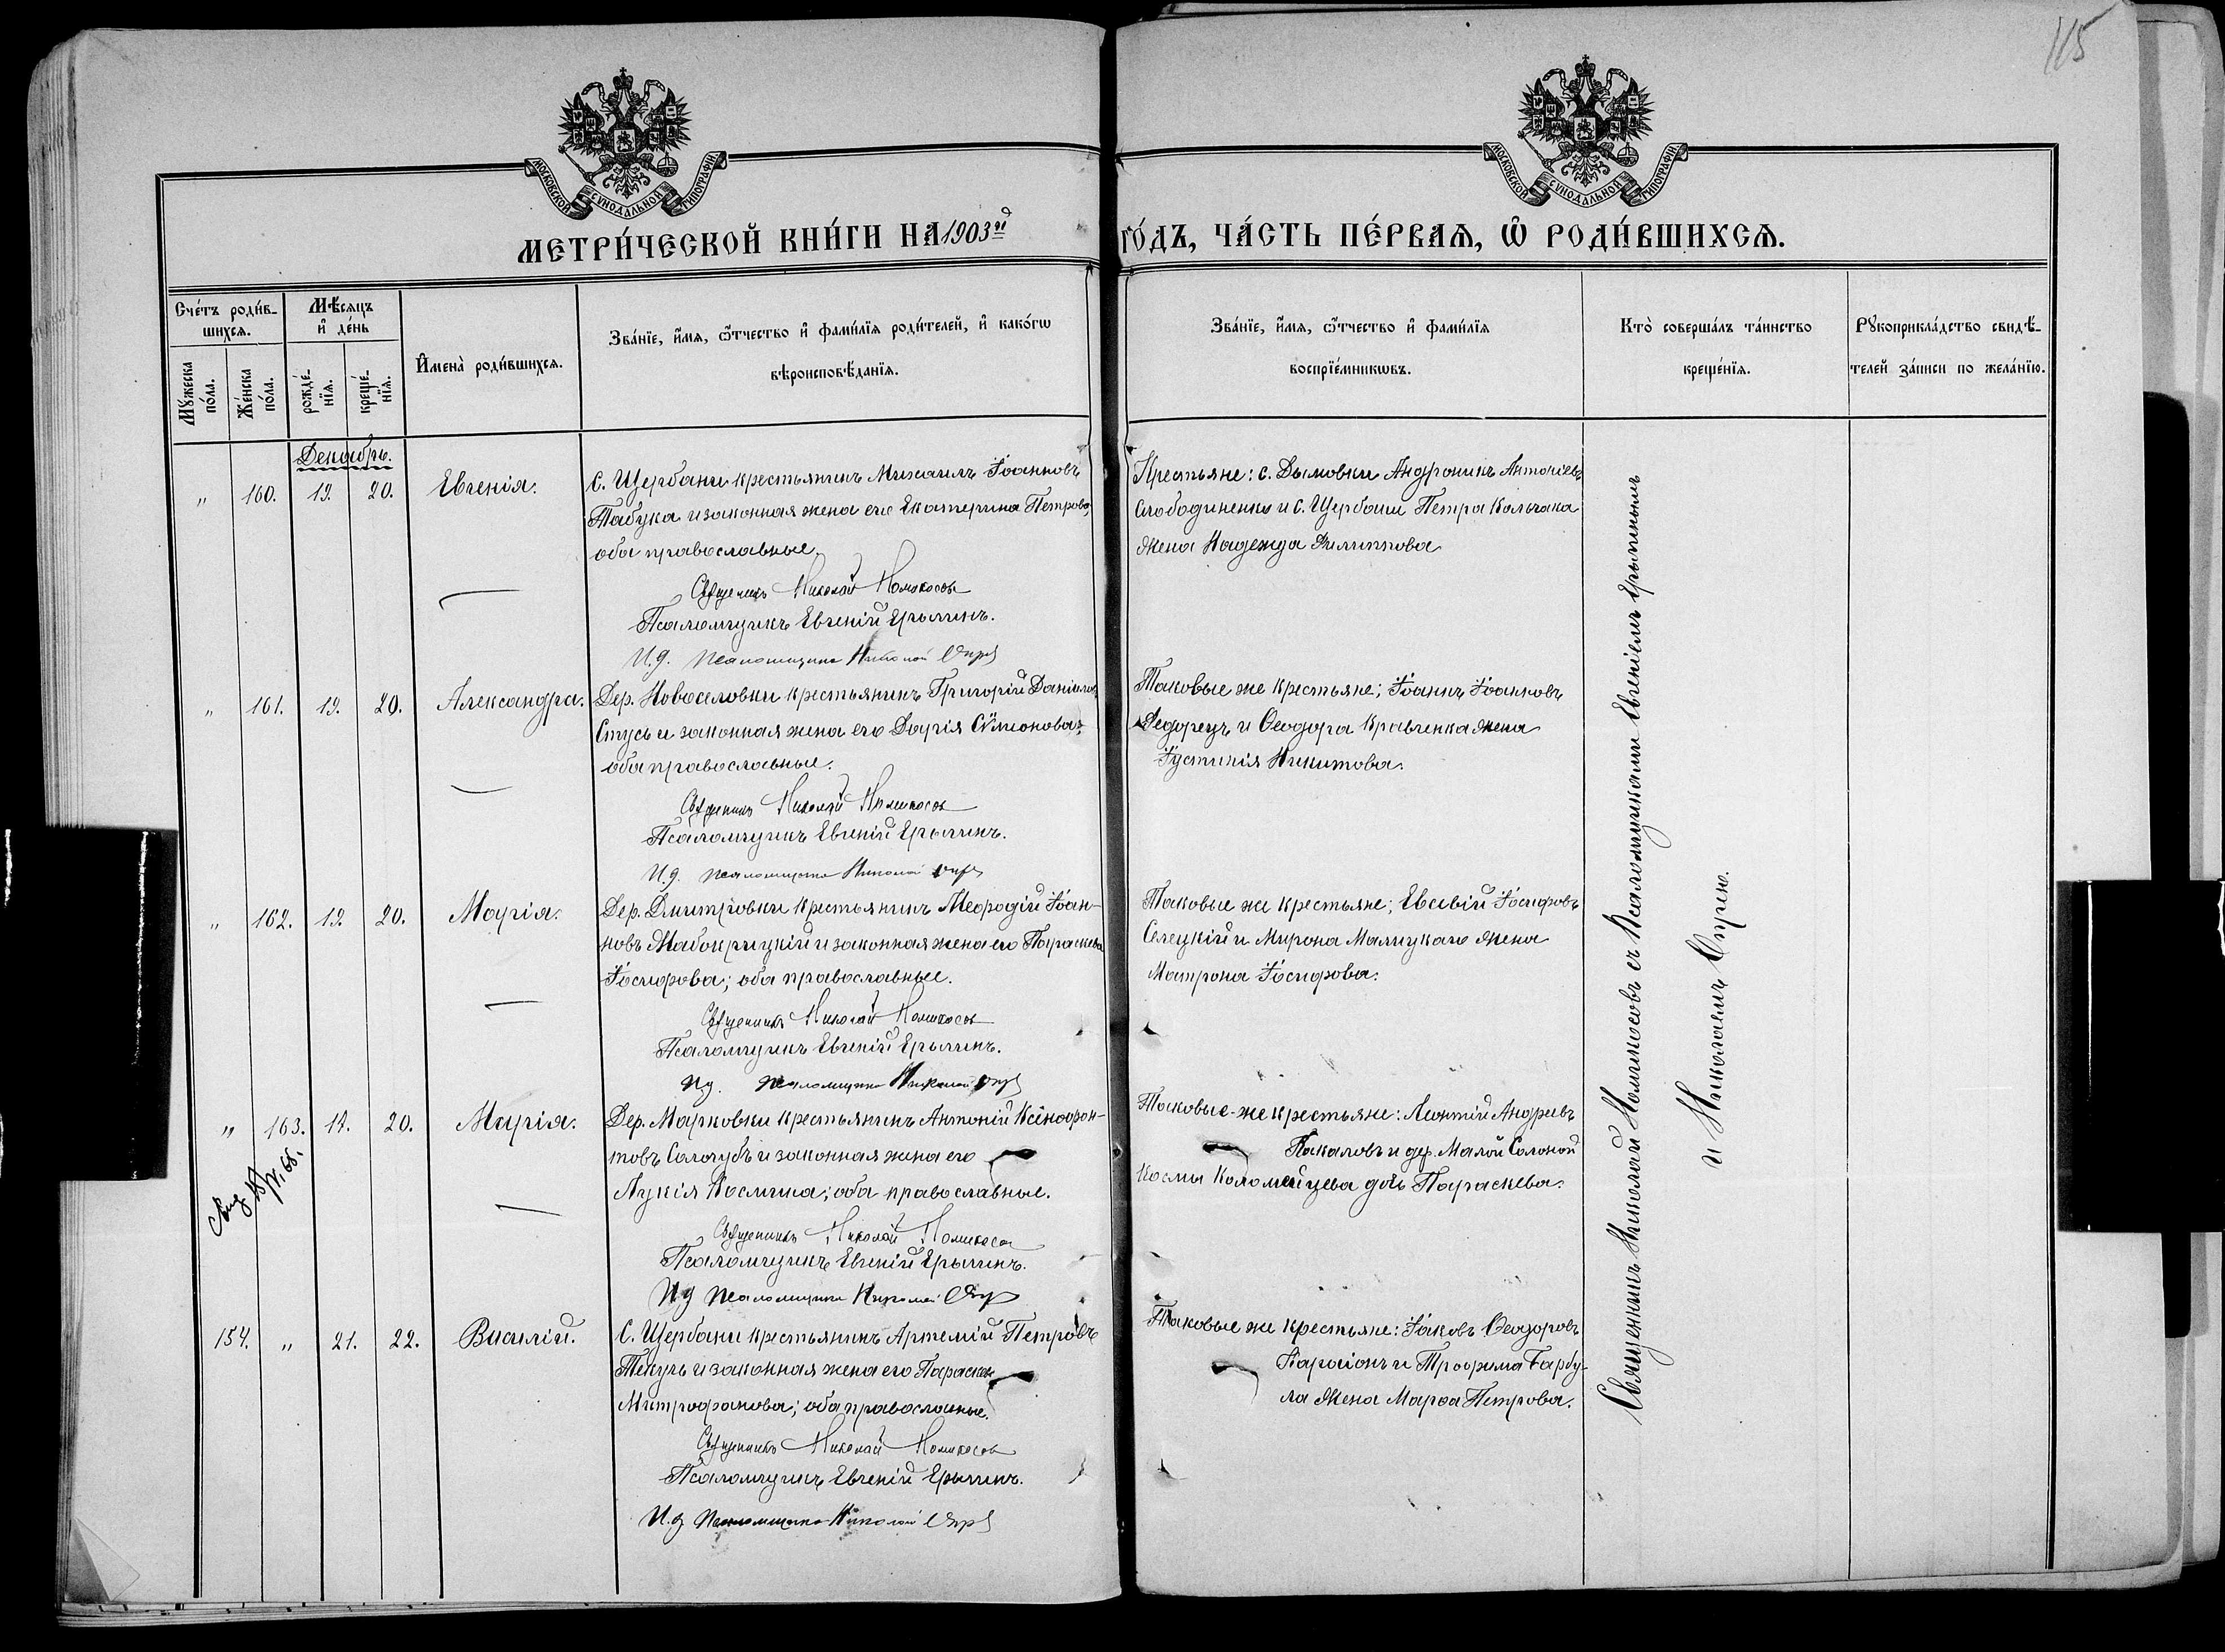 115
МОСКОВСКОЙ СѴНОДАЛЬНОЙ ТИПОГРАФІИ
МОСКОВСКОЙ СѴНОДАЛЬНОЙ ТИПОГРАФІИ
МЕТРИ́ЧЕСКОЙ КНИ́ГИ НА 1903й
ГО́ДЪ, ЧА́СТЬ ПЕ́РВАѦ, Ѡ РОДИ́ВШИХСѦ.
Сче́тъ роди́в-
шихсѧ.
Мѣ́сяцъ
и҆ де́нь
Мꙋ́жеска
по́ла.
Же́нска
по́ла.
рожде́-
нїѧ.
креще́-
нїѧ.
И҆мена̀ роди́вшихсѧ.
Зва́нїе, и҆́мѧ, ѻ҆́тчество и҆ фами́лїѧ роди́телей, и҆ како́гѡ
вѣроисповѣ́данїѧ.
Зва́нїе, и҆́мѧ, ѻ҆́тчество и҆ фами́лїѧ
воспрїе́мникѡвъ.
Кто̀ соверша́лъ та́инство
креще́нїѧ.
Рꙋкоприкла́дство свидѣ́-
телей за́писи по жела́нїю.
Декабрь.
" 160. 19. 20. Евгенія.
С. Щербани крестьянинъ Михаилъ Іоанновъ
Табука и законная жена его Екатерина Петрова,
оба православные.
Священникъ Николай
Псаломщикъ Евгеній Ерыгинъ.
И.д. псаломщика Николай
Крестьяне: с. Дымовки Андроникъ Антоніевъ
Слободиненко и с. Щербани Петра Кольчака
жена Надежда Филиппова
" 161. 19. 20. Александра.
Дер. Новоселовки крестьянинъ Григорій Даніиловъ
Стусь и законная жена его Дарія Сѵмеонова;
оба православные.
Священникъ Николай
Псаломщикъ Евгеній Ерыгинъ.
И.д. псаломщика Николай
Таковые же крестьяне; Іоаннъ Іоанновъ
Федорецъ и Ѳеодора Кравченка жена
Іустинія Никитова.
" 162. 19. 20. Марія.
Дер. Дмитріовки крестьянинъ Меѳодій Іоан-
новъ Мабокрицкій и законная жена его Параскева
Іосифова; оба православные.
Священникъ Николай
Псаломщикъ Евгеній Ерыгинъ.
И.д. псаломщика Николай
Таковые же крестьяне; Евсевій Іосифовъ
Селецкій и Мирона Малицкаго жена
Матрона Іосифова.
" 163. 17. 20. Марія.
Дер. Марковки крестьянинъ Антоній Ксенофон-
товъ Сологубъ и законная жена его
Лукія Космина; оба православные.
Священникъ Николай
Псаломщикъ Евгеній Ерыгинъ.
И.д псаломщика Николай
Таковые-же крестьяне: Леонтій Андреевъ
Бакаловъ и дер. Малой Солоной
Космы Коломийцева дочь Параскева.
154. " 21. 22. Василій.
С. Щербани крестьянинъ Артемій Петровъ
Текучъ и законная жена его Параскева
Митрофанова; оба православные.
Священникъ Николай
Псаломщикъ Евгеній Ерыгинъ.
И.д псаломщика Николай
Таковые же крестьяне: Іаковъ Ѳеодоровъ
Карасіонъ и Трофима Барбу-
ла жена Марѳа Петрова.
Священникъ Николай съ Псаломщиками Евгеніемъ Ерыгинымъ
и Николаемъ